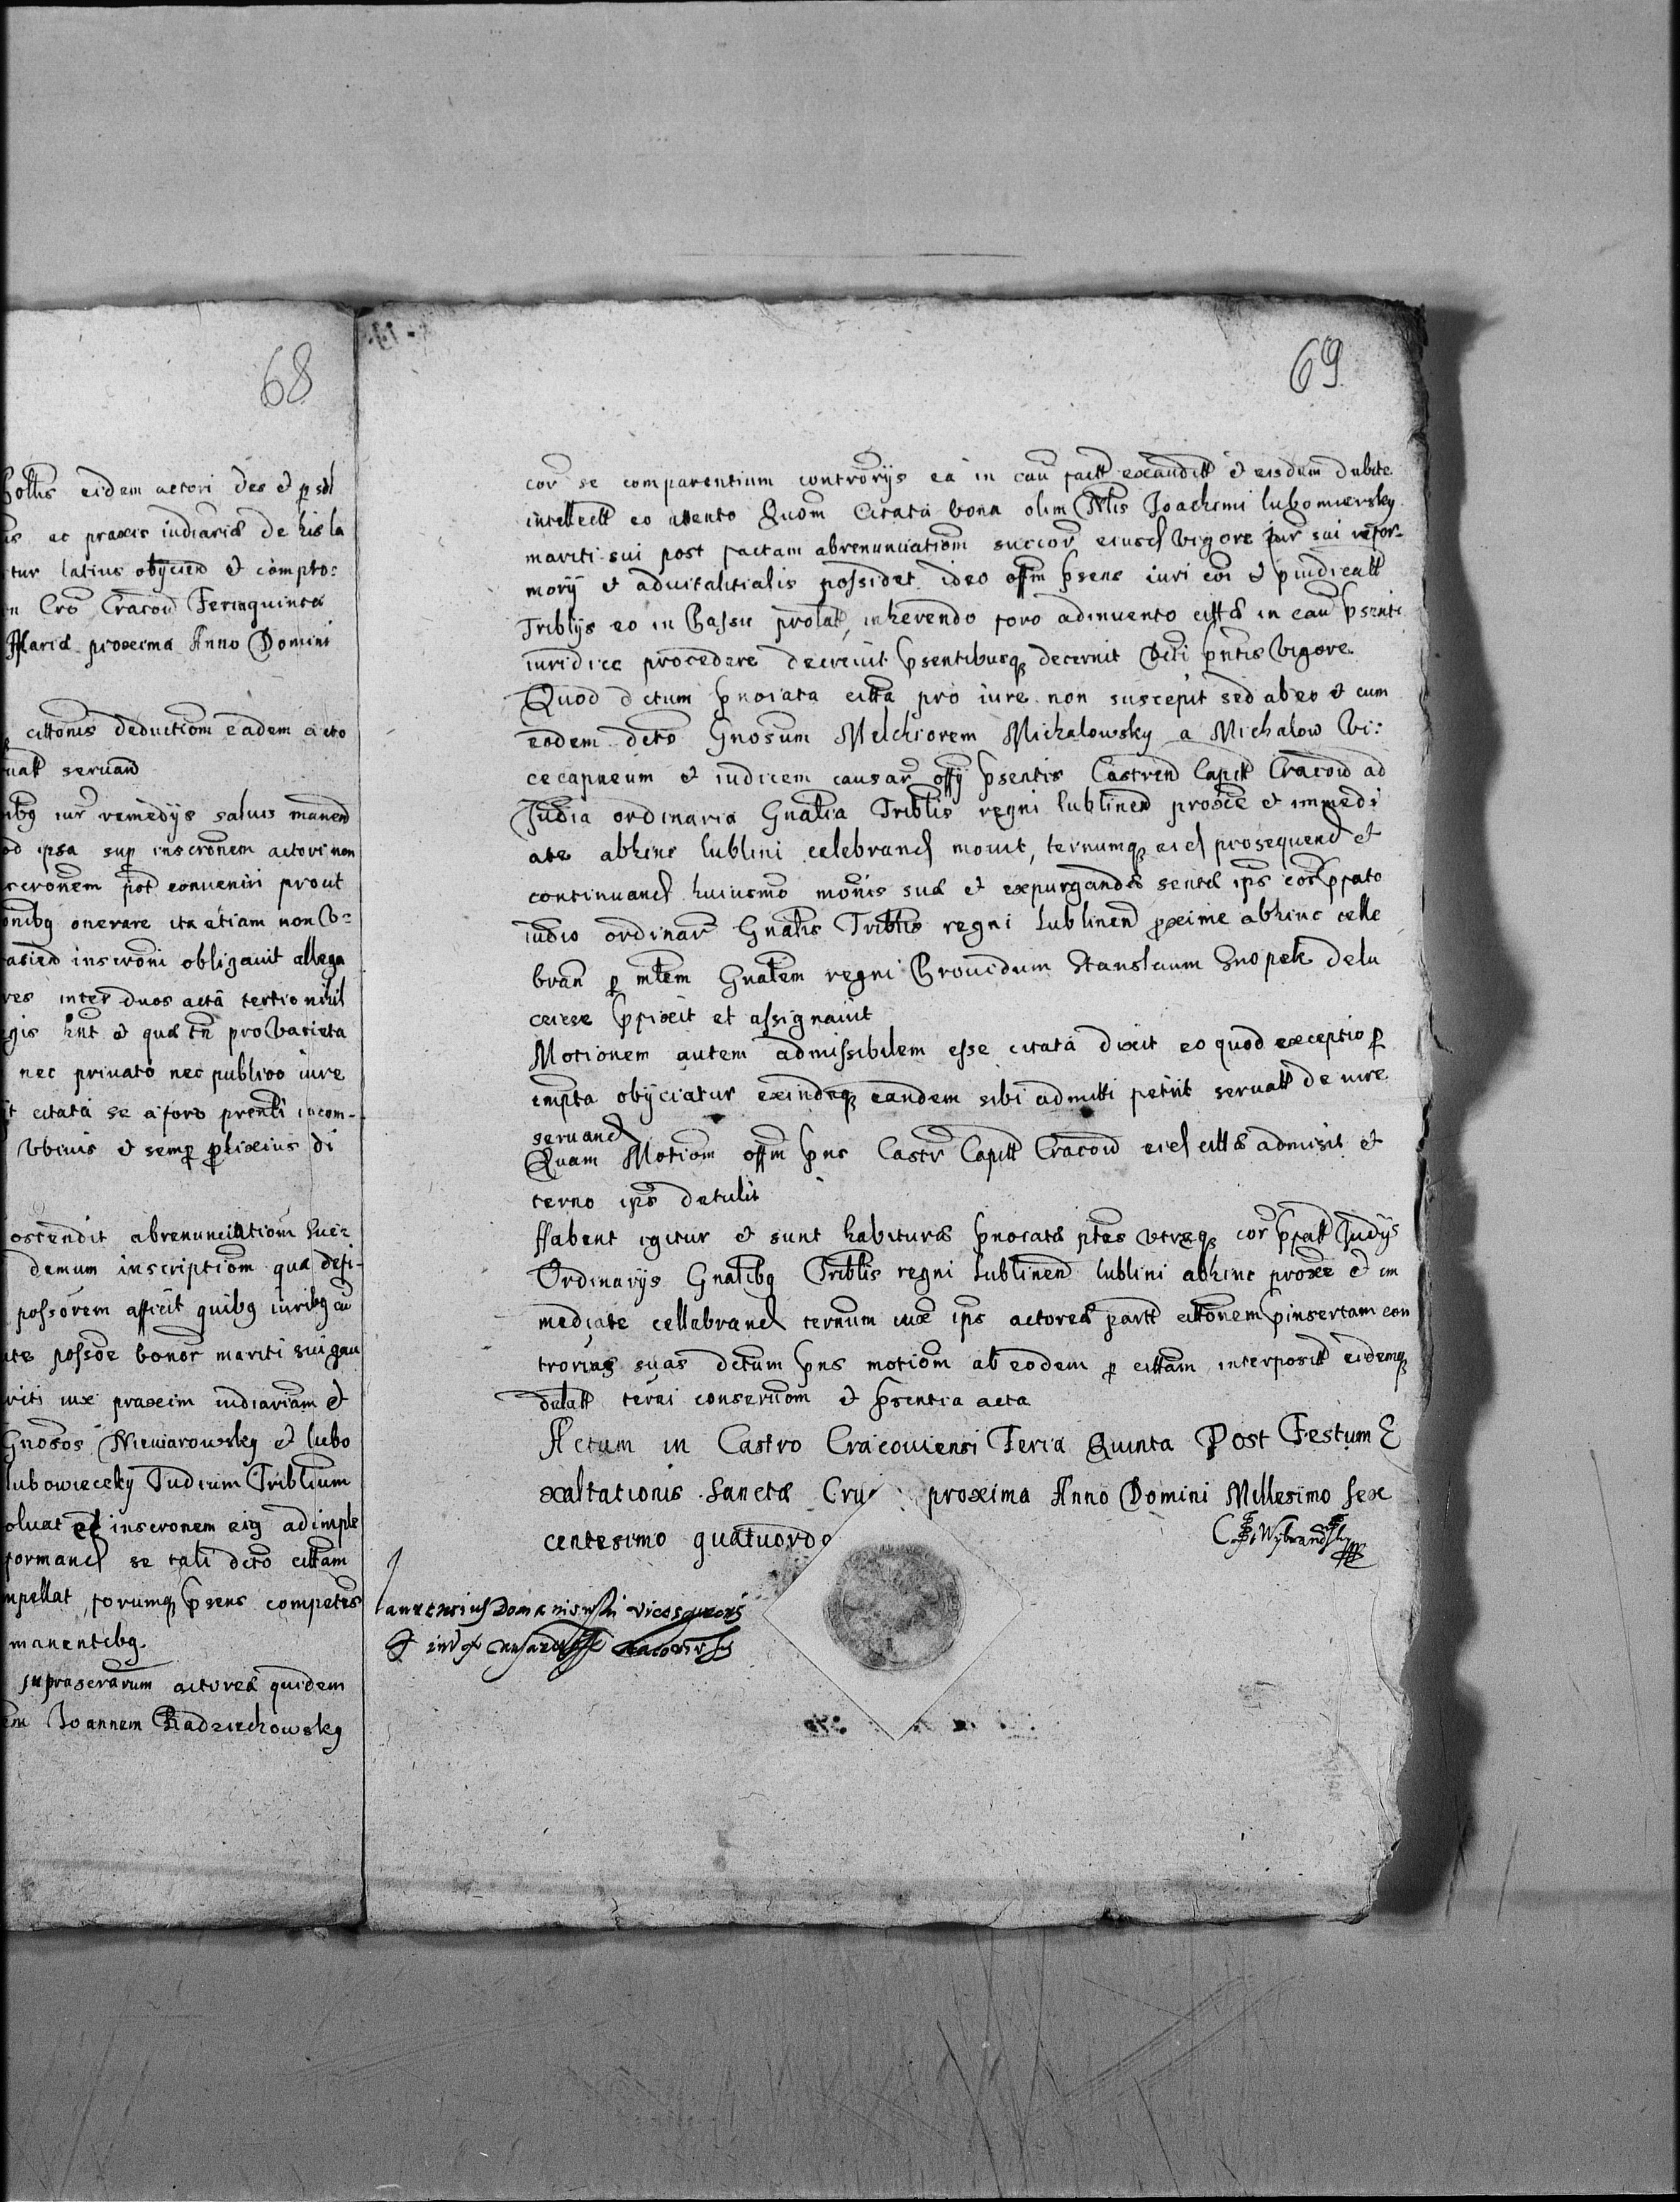 68
eidem actori des et
ac praxis iudiariæ de his la
tur latius obijcien et compro:
Cro Cracoui Feria quinta
Mariæ proxima Anno Domini
cittonis deductiom eadem acto
seruand
iur remedijs saluis manend
od ipsa sup inscronem actori non
scronem pot conueniri prout
onibq onerare ita etiam non
inscroni obligauit allega
res inter duos acta tertio nihil
nec priuato nec publico iure
citata se a foro prenti incom-
et semp plixius di
ostendit abrenunciatiom
demum inscriptiom qua defi-
possorem afficit quibq iuribq cu
possoe bonor mariti sui gau
riti iux praxim iudiariam et
Gnosos Niewiarowsky et lubo
lubowieceky Iudicum Triblium
inscronem eiq adimple
formand se tali decto cittam
mpellat, forumq psens competens
manentibq
actorea quidem
Ioannem Radziechowsky
69
cor se comparentium controrijs ea in cau factt exauditt et eisdem debite
intellectt eo attento Quom Citata bona olim Nlis Joachimi lubomiersky
mariti sui post factam abrenunciatiom succor eiusd vigore iur sui refor-
morij et aduitalitialis possidet ideo offm psens iuri coi et piudicatt
Triblijs eo in Passu prolat, inherendo foro adinuento citta in cau psenti
iuridice procedere decreuit psentibusq decernit Dcti pntis vigore
Quod dctum pnoiata citta pro iure non suscepit sed ab eo et cum
eodem decto Gnosum Melchiorem Michalowsky a Michalow Vi:
cecapneum et iudicem causar offy psentis Castren Capitt Cracoui ad
Judia ordinaria Gnalia Triblis regni lublinen proxie et immedi
ate abhinc lublini celebrand mouit, ternumq eid prosequend et
continuand huiusmo monis suæ et expurgandæ sentæ ips cor pfato
iudio ordinar Gnalis Triblis regni lublinen pxime abhinc celle
bran p mtem Gnalem regni Prouidum Stanslaum Gnopek de lu
ceiese pfixit et assignauit
Motionem autem admissibilem esse citata dixit eo quod exceptio p
empta obijciatur exindeq eandem sibi admitti petijt seruatt de iure
seruand
Quam Motiom offm pns Castr Capitt Cracoui eid cittæ admisit et
terno ips detulit
Habent igitur et sunt habituræ pnoiatæ ptes vtræq cor pfatt Judijs
Ordinarijs Gnalibq Triblis regni lublinen lublini abhinc proxe et im
mediate cellabrand ternum iux ips actoreæ partt cittonem pinsertam con
trorias suas dctum pns motiom ab eodem p cittam interpositt eidemq
delatt terni conseruom et psentia acta
Actum in Castro Cracouiensi Feria Quinta Post Festum E
xaltationis Sanctæ Cru proxima Anno Domini Millesimo Sex
centesimo quatuordo